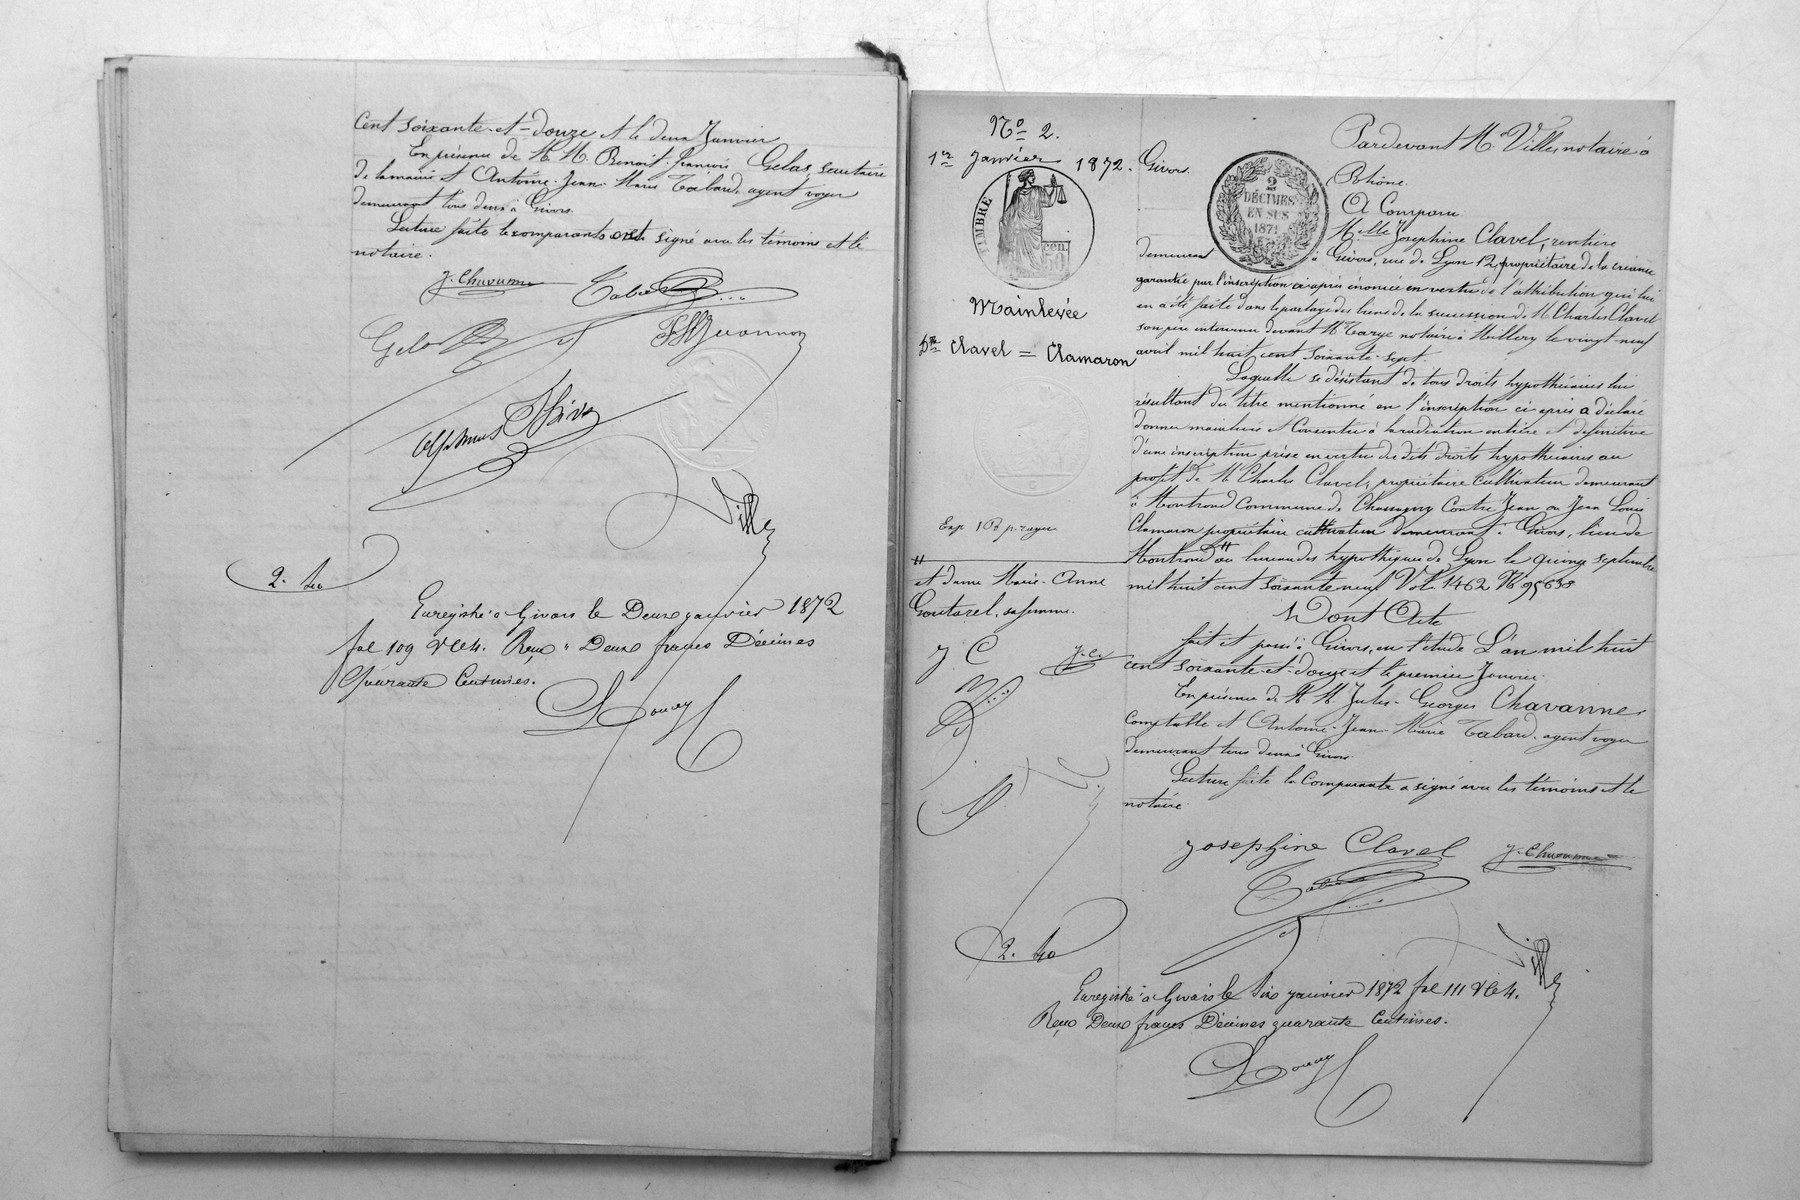 Cent soixante-et-douze et le deux Janvier
En présence de M.M. Benoit-François Gelas, secrétaire
de la mairie et Antoine-Jean-Marie Tabard, agent voyer
demeurant tous deux à Givors.
Lecture faite les comparants ont signé avec les témoins et le
notaire.
J. Chavanne
Tabard
Gelas
Ville
2. 40
Enregistré à Givors le Deux janvier 1872
fol 109 v c 4. Reçu Deux francs Décimes
Quarante Centimes.
No 2.
1er Janvier 1872.
TIMBRE
50 cen
Mainlevée
Dlle Clavel = Clamaron
Exp 1 R
et dame Marie-Anne
Goutarel, sa femme.
J C
J. C.
Pardevant Me Ville, notaire à
Givors
2
DÉCIMES
EN SUS
1871
Rhône.
A Comparu
Melle Joséphine Clavel, rentière
demeurant à Givors, rue de Lyon 12, propriétaire de la créance
garantie par l'inscription ci-après énoncée en vertu de l'attribution qui lui
en a été faite dans le partage des biens de la succession de M. Charles Clavel
son père intervenu devant Me notaire à Millery le vingt-neuf
avril mil huit cent soixante-sept.
Laquelle se désistant de tous droits hypothécaires lui
résultant du titre mentionné en l'inscription ci-après a déclaré
donner mainlevée et Consentir à la radiation entière et définitive
d'une inscription prise en vertu des dits droits hypothécaires au
profit de M. Charles Clavel, propriétaire cultivateur demeurant
à Montrond Commune de Chassagny Contre Jean ou Jean Louis
Clamaron propriétaire cultivateur demeurant à Givors, lieu de
Montrond " au bureau des hypothèques de Lyon le quinze septembre
mil huit cent soixante neuf Vol. 1462 No 95633
Dont Acte
fait et passé à Givors, en l'étude L'an mil huit
cent soixante-et-douze et le premier Janvier.
En présence de M.M. Jules-Georges Chavanne
Comptable et Antoine-Jean-Marie Tabard, agent voyer
demeurant tous deux à Givors.
Lecture faite la Comparante a signé avec les témoins et le
notaire.
Josephine Clavel
J. Chavanne
Tabard
Ville
2. 40
Enregistré à Givors le Six janvier 1872 fol 111 v c 4.
Reçu Deux francs Décimes quarante Centimes.